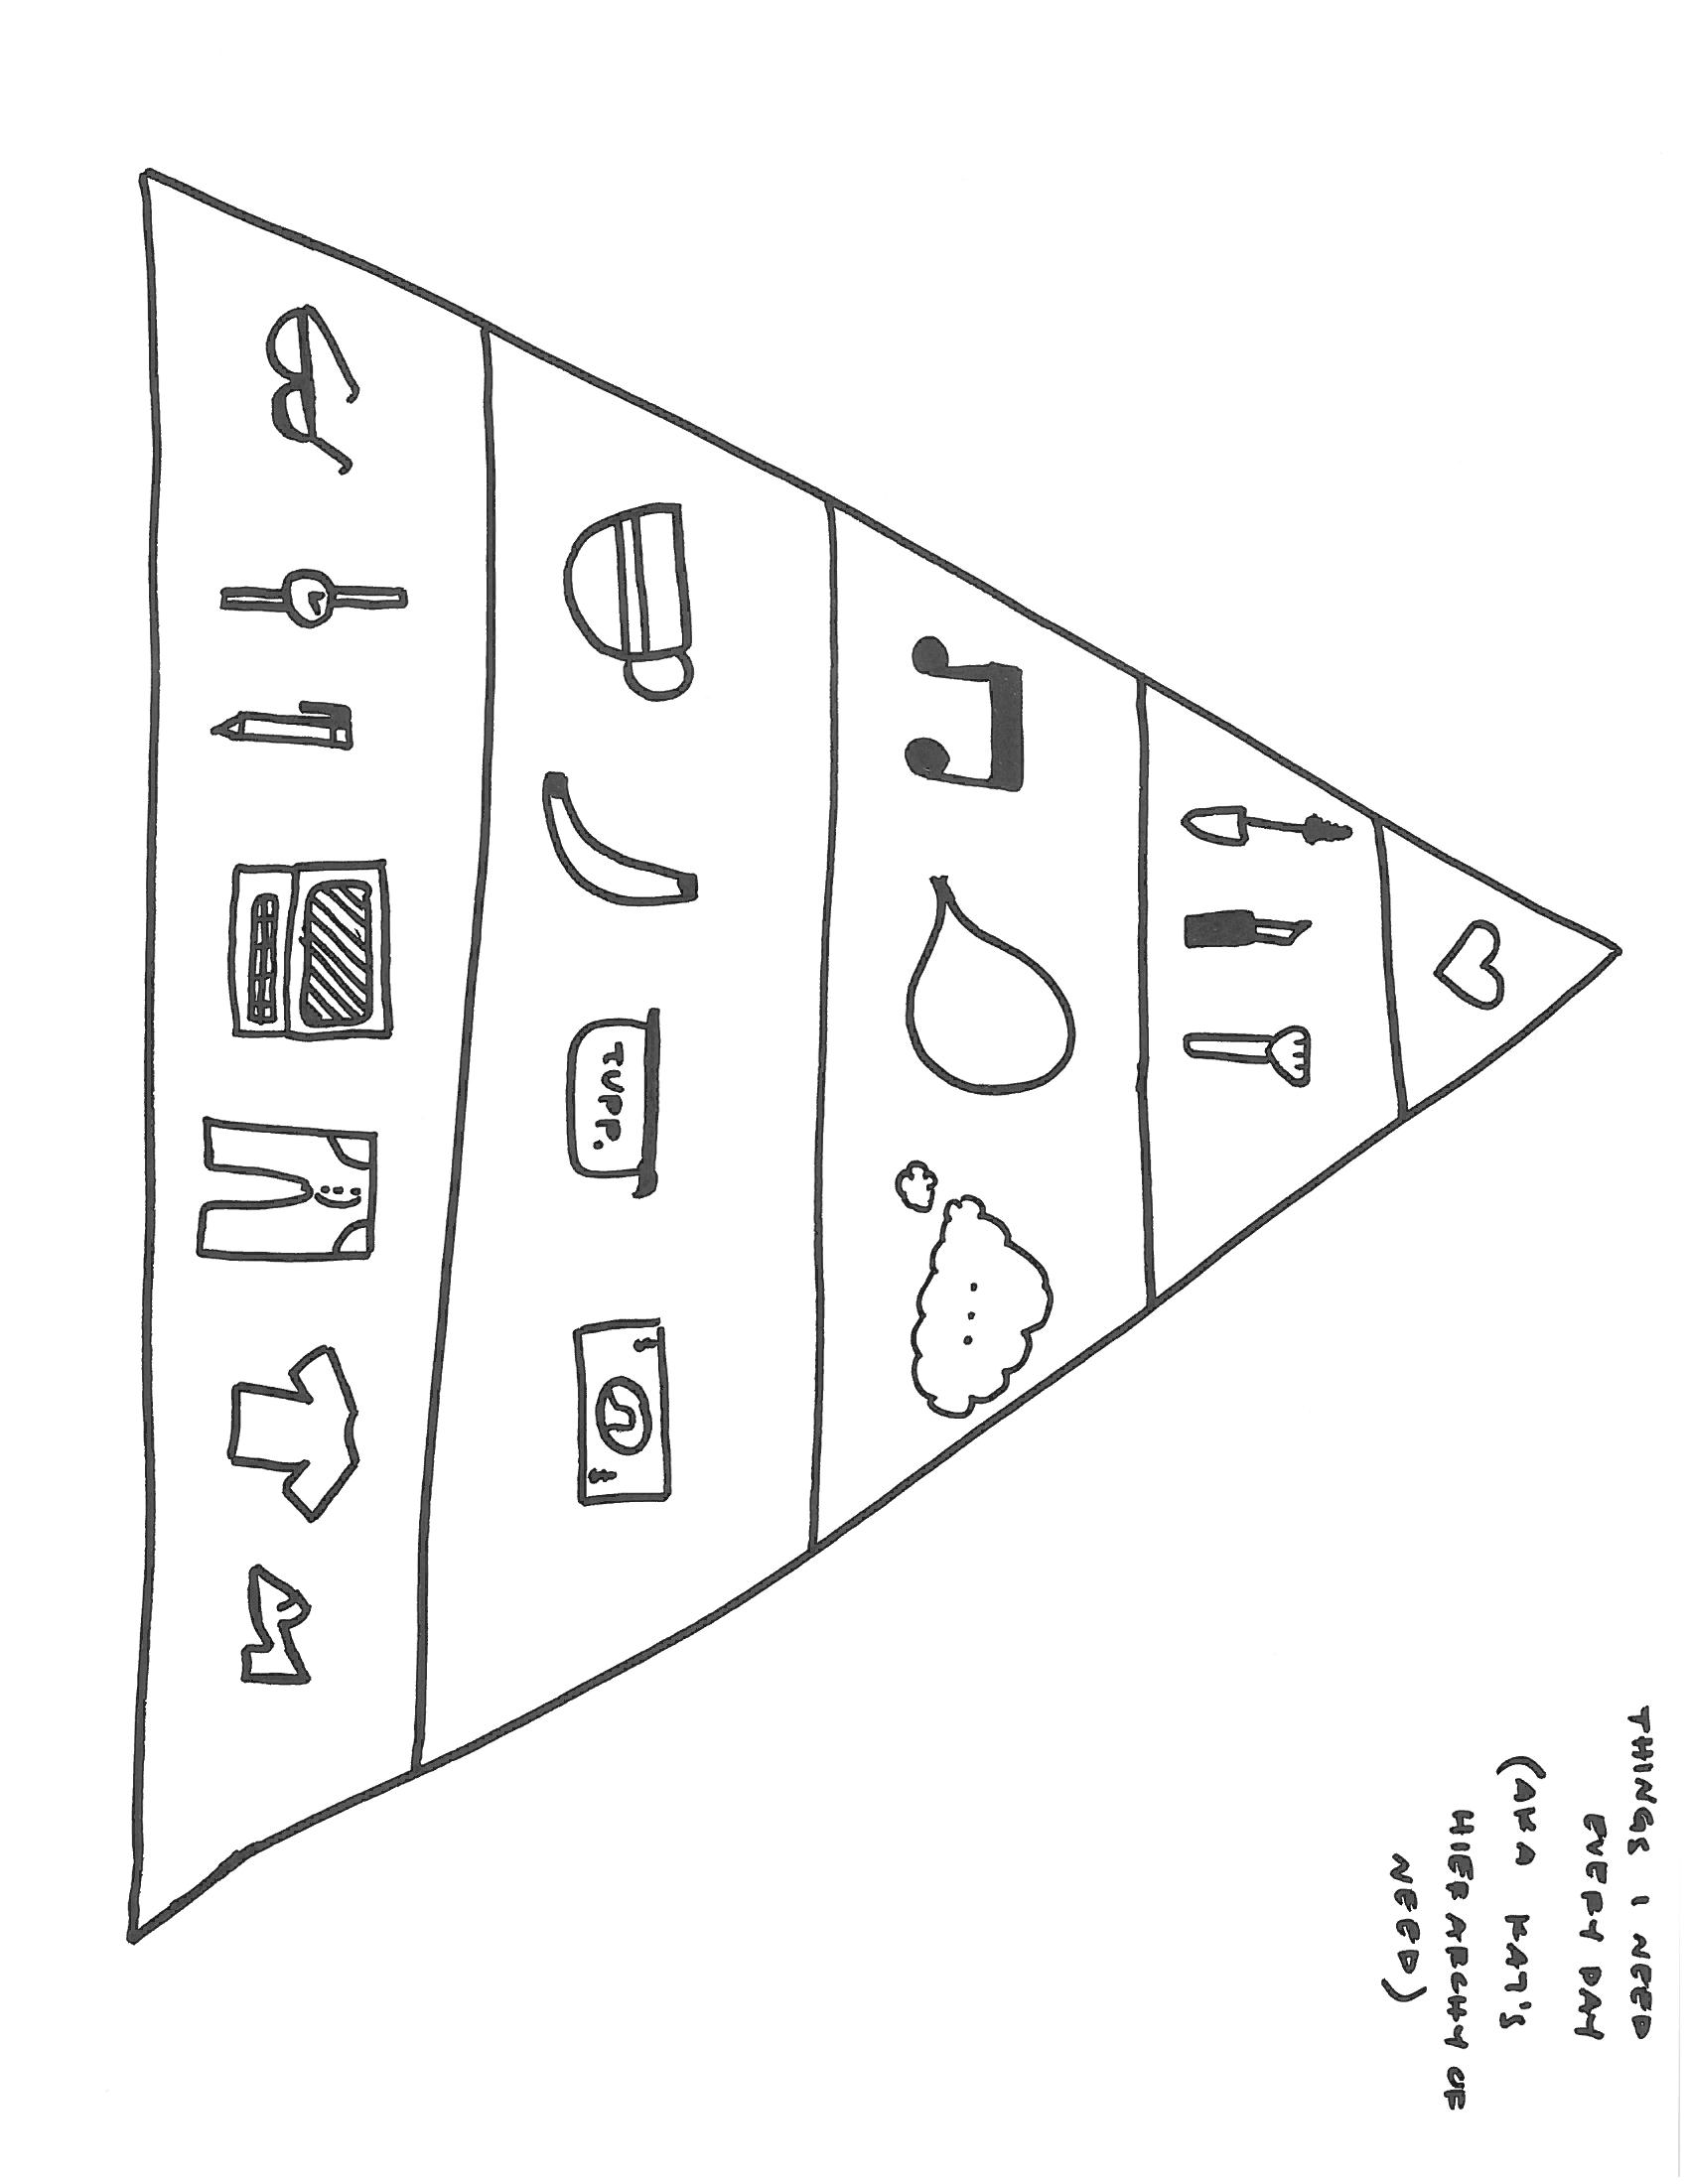 THINGS I NEED
EVERY DAY
(AKA KAT'S
HIERARCHY OF
NEED)
TUPP.
$
$